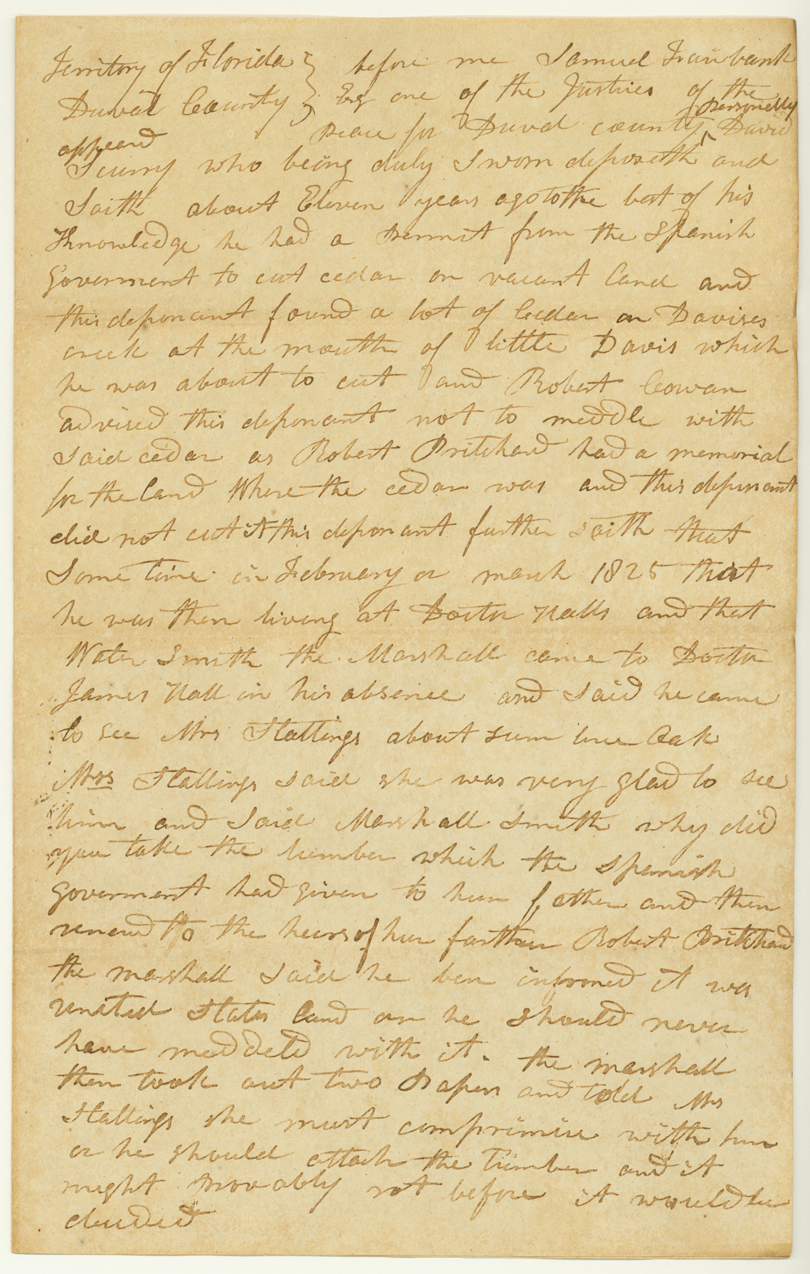 Territory of Florida } before me Samuel Fairbank
Duval County } Esq one of the Justices of the
peace for Duval county personally David
appeard
Scurry who being duly Sworn deposeth and
Saith about Eleven years ago to the best of his
Knowledge he had a permit from the Spanish
Goverment to cut cedar on vacant land and
this deponant found a lot of Cedar on Davises
creek at the mouth of little Davis which
he was about to cut and Robert Cowan
advised this deponant not to meddle with
Said cedar as Robert Pritchard had a memorial
for the land Where the cedar was and this deponant
did not cut it this deponant further saith that
Some time in February or march 1825 that
he was then living at Doctor Halls and that
Water Smith the Marshall came to Doctor
James Hall in his absence and Said he came
to see Mrs Stallings about sum live Oak
Mrs Stallings said she was very glad to see
him and Said Marshall Smith why did
you take the limber which the Spanish
Goverment had given to hur father and then
renewd to the heirs of hur farther Robert Pritchard
the marshall Said he ben informed it was
united States land or he should never
have meddeld with it. the marshall
then took out two Papers and told Mrs
Stallings she must compromise with him
or he should attach the timber and it
might provably rot before it would be
decided